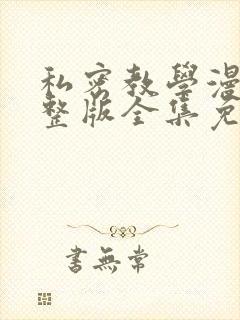 私密教學漫
整版全集免
書無常